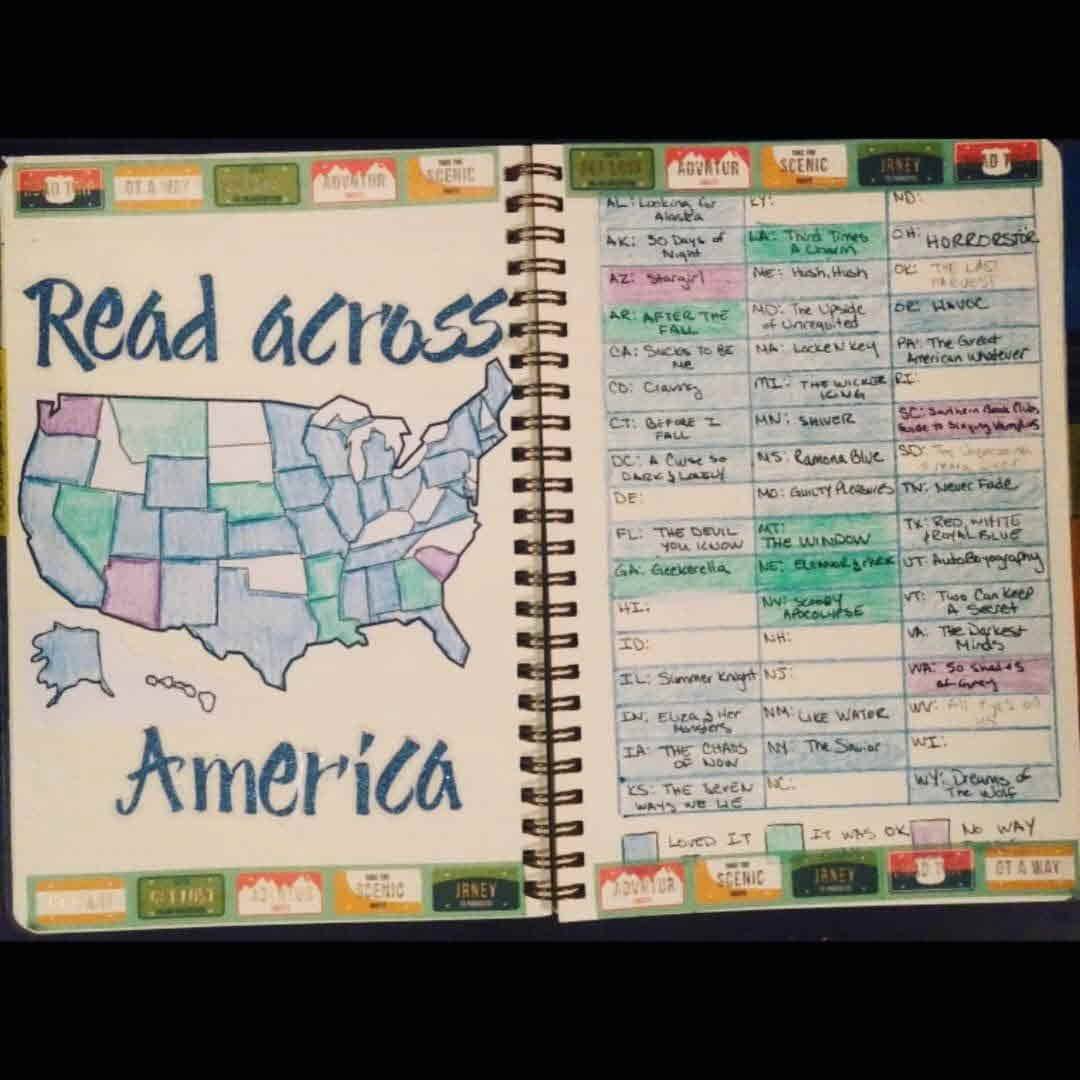 AD T
ADVATUR
TAKE THE
SCENIC
ROUTE
ADVATUR
TAKE THE
SCENIC
JRNEY
AD T
Read across
America
AL: Looking for
Alaska
AK: 30 Days of
Night
AZ: Stargirl
AR: AFTER THE
FALL
CA: SUCKS TO BE
ME
CO: Craving
CT: BEFORE I
FALL
DC: A Curse So
DARK & LONELY
DE:
FL: THE DEVIL
YOU KNOW
GA: Geekerella
HI:
ID:
IL: Summer Knight
IN: Eliza & Her
Monsters
IA: THE CHAOS
OF NOW
KS: THE SEVEN
WAYS WE LIE
KY:
LA: Third Times
A Charm
ME: Hush, Hush
MD: The Upside
of Unrequited
MA: Locke N Key
MI: THE WICKER
KING
MN: SHIVER
MS: Ramona Blue
MO: GUILTY PLEASURES
MT:
THE WINDOW
NE: ELEANOR & PARK
NV: SCARY
APOCALYPSE
NH:
NJ:
NM: LIKE WATER
NY: The Savior
NC:
ND:
OH: HORRORSTÖR
OK: THE LAST
HARVEST
OR: HAVOC
PA: The Great
American Whatever
RI:
SC: Southern Book Clubs
Guide to Slaying Vampires
SD:
TN: Never Fade
TX: RED, WHITE
& ROYAL BLUE
UT: AutoBoyography
VT: Two Can Keep
A Secret
VA: The Darkest
Minds
WA: 50 Shades
of Grey
WV: All Eyes on
US
WI:
WY: Dreams of
The Wolf
LOVED IT
IT WAS OK
NO WAY
GET LOST
ADVATUR
TAKE THE
SCENIC
ROUTE
JRNEY
ADVATUR
TAKE THE
SCENIC
ROUTE
JRNEY
AD T
GT A WAY